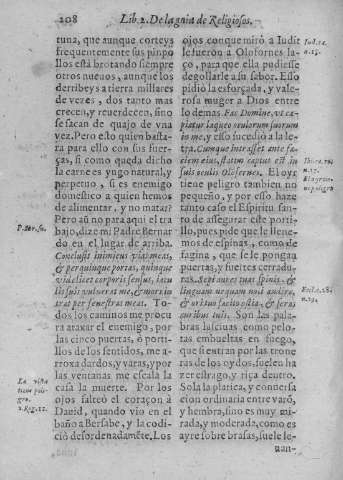 208
Lib. 2. De la guia de Religiosos.
tuna, que aunque corteys
frequentemente sus pinpo
llos està brotando siempre
otros nueuos, aunque los
derribeys a tierra millares
de vezes, dos tantos mas
crecen, y reuerdecen, sino
se sacan de quajo de vna
vez. Pero esto quien basta-
ra para ello con sus fuer-
ças, si como queda dicho
la carne es yugo natural, y
perpetuo, si es enemigo
domestico a quien hemos
de alimentar, y no matar?
Pero aũ no para aqui el tra
bajo, dize mi Padre Bernar
do en el lugar de arriba.
Conclusit inimicus vias meas,
& per quinque portas, quinque
videlicet corporis sensus, iacu
lis suis vulnerat me, & mors in
trat per fenestras meas. To-
dos los caminos me procu
ra atajar el enemigo, por
las cinco puertas, ò porti-
llos de los sentidos, me a-
rroxa dardos, y varas, y por
las ventanas me escala la
casa la muerte. Por los
ojos salteò el coraçon à
Dauid, quando vio en el
baño a Bersabe, y la codi-
ciò desordenadamẽte. Los
P. Ber. su.
La vista
tiene peli-
gro.
2. Reg. 11.
ojos conque mirò a Iudit
le fueron à Olofernes la-
ço, para que ella pudiesse
degollarle a su sabor. Esso
pidio la esforçada, y vale-
rosa muger a Dios entre
lo demas. Fac Domine, vt ca
piatur laqueo oculorum suorum
in me, y esso sucediò a la le-
tra. Cumque intrasset ante fa-
ciem eius, statim captus est in
suis oculis Olofernes. El oyr
tiene peligro tambien no
pequeño, y por esso haze
tanto caso el Espiritu san-
to de assegurar este porti-
llo, pues pide que le llene-
mos de espinas, como de
fagina, que se le pongan
puertas, y fuertes cerradu
ras. Sepi aures tuas spinis, &
linguam nequam noli audire,
& ori tuo facito ostia, & seras
auribus tuis. Son las pala-
bras lasciuas como pelo-
tas embueltas en fuego,
que si entran por las trone
ras de los oydos, suelen ha
zer estrago, y riça dentro.
Sola la platica, y conuersa
cion ordinaria entre varõ,
y hembra, sino es muy mi-
rada, y moderada, como es
ayre sobre brasas, suele le-
uan-